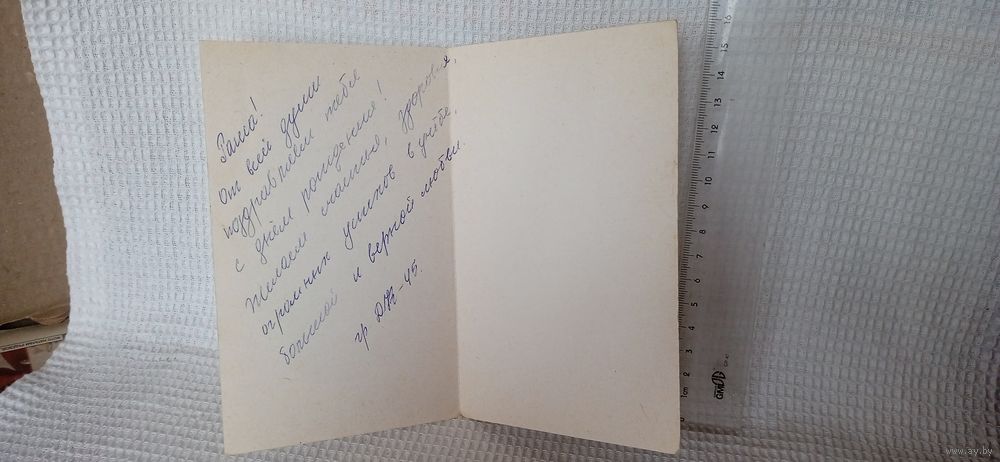 Заша!
От всей души
поздравляем тебя
с днём рождения!
Желаем счастья, здоровья,
огромных успехов в учёбе,
большой и верной любви.
гр ДК-45.
16
15
14
13
12
11
10
9
8
7
6
5
4
3
2
1cm
0
www.ay.by